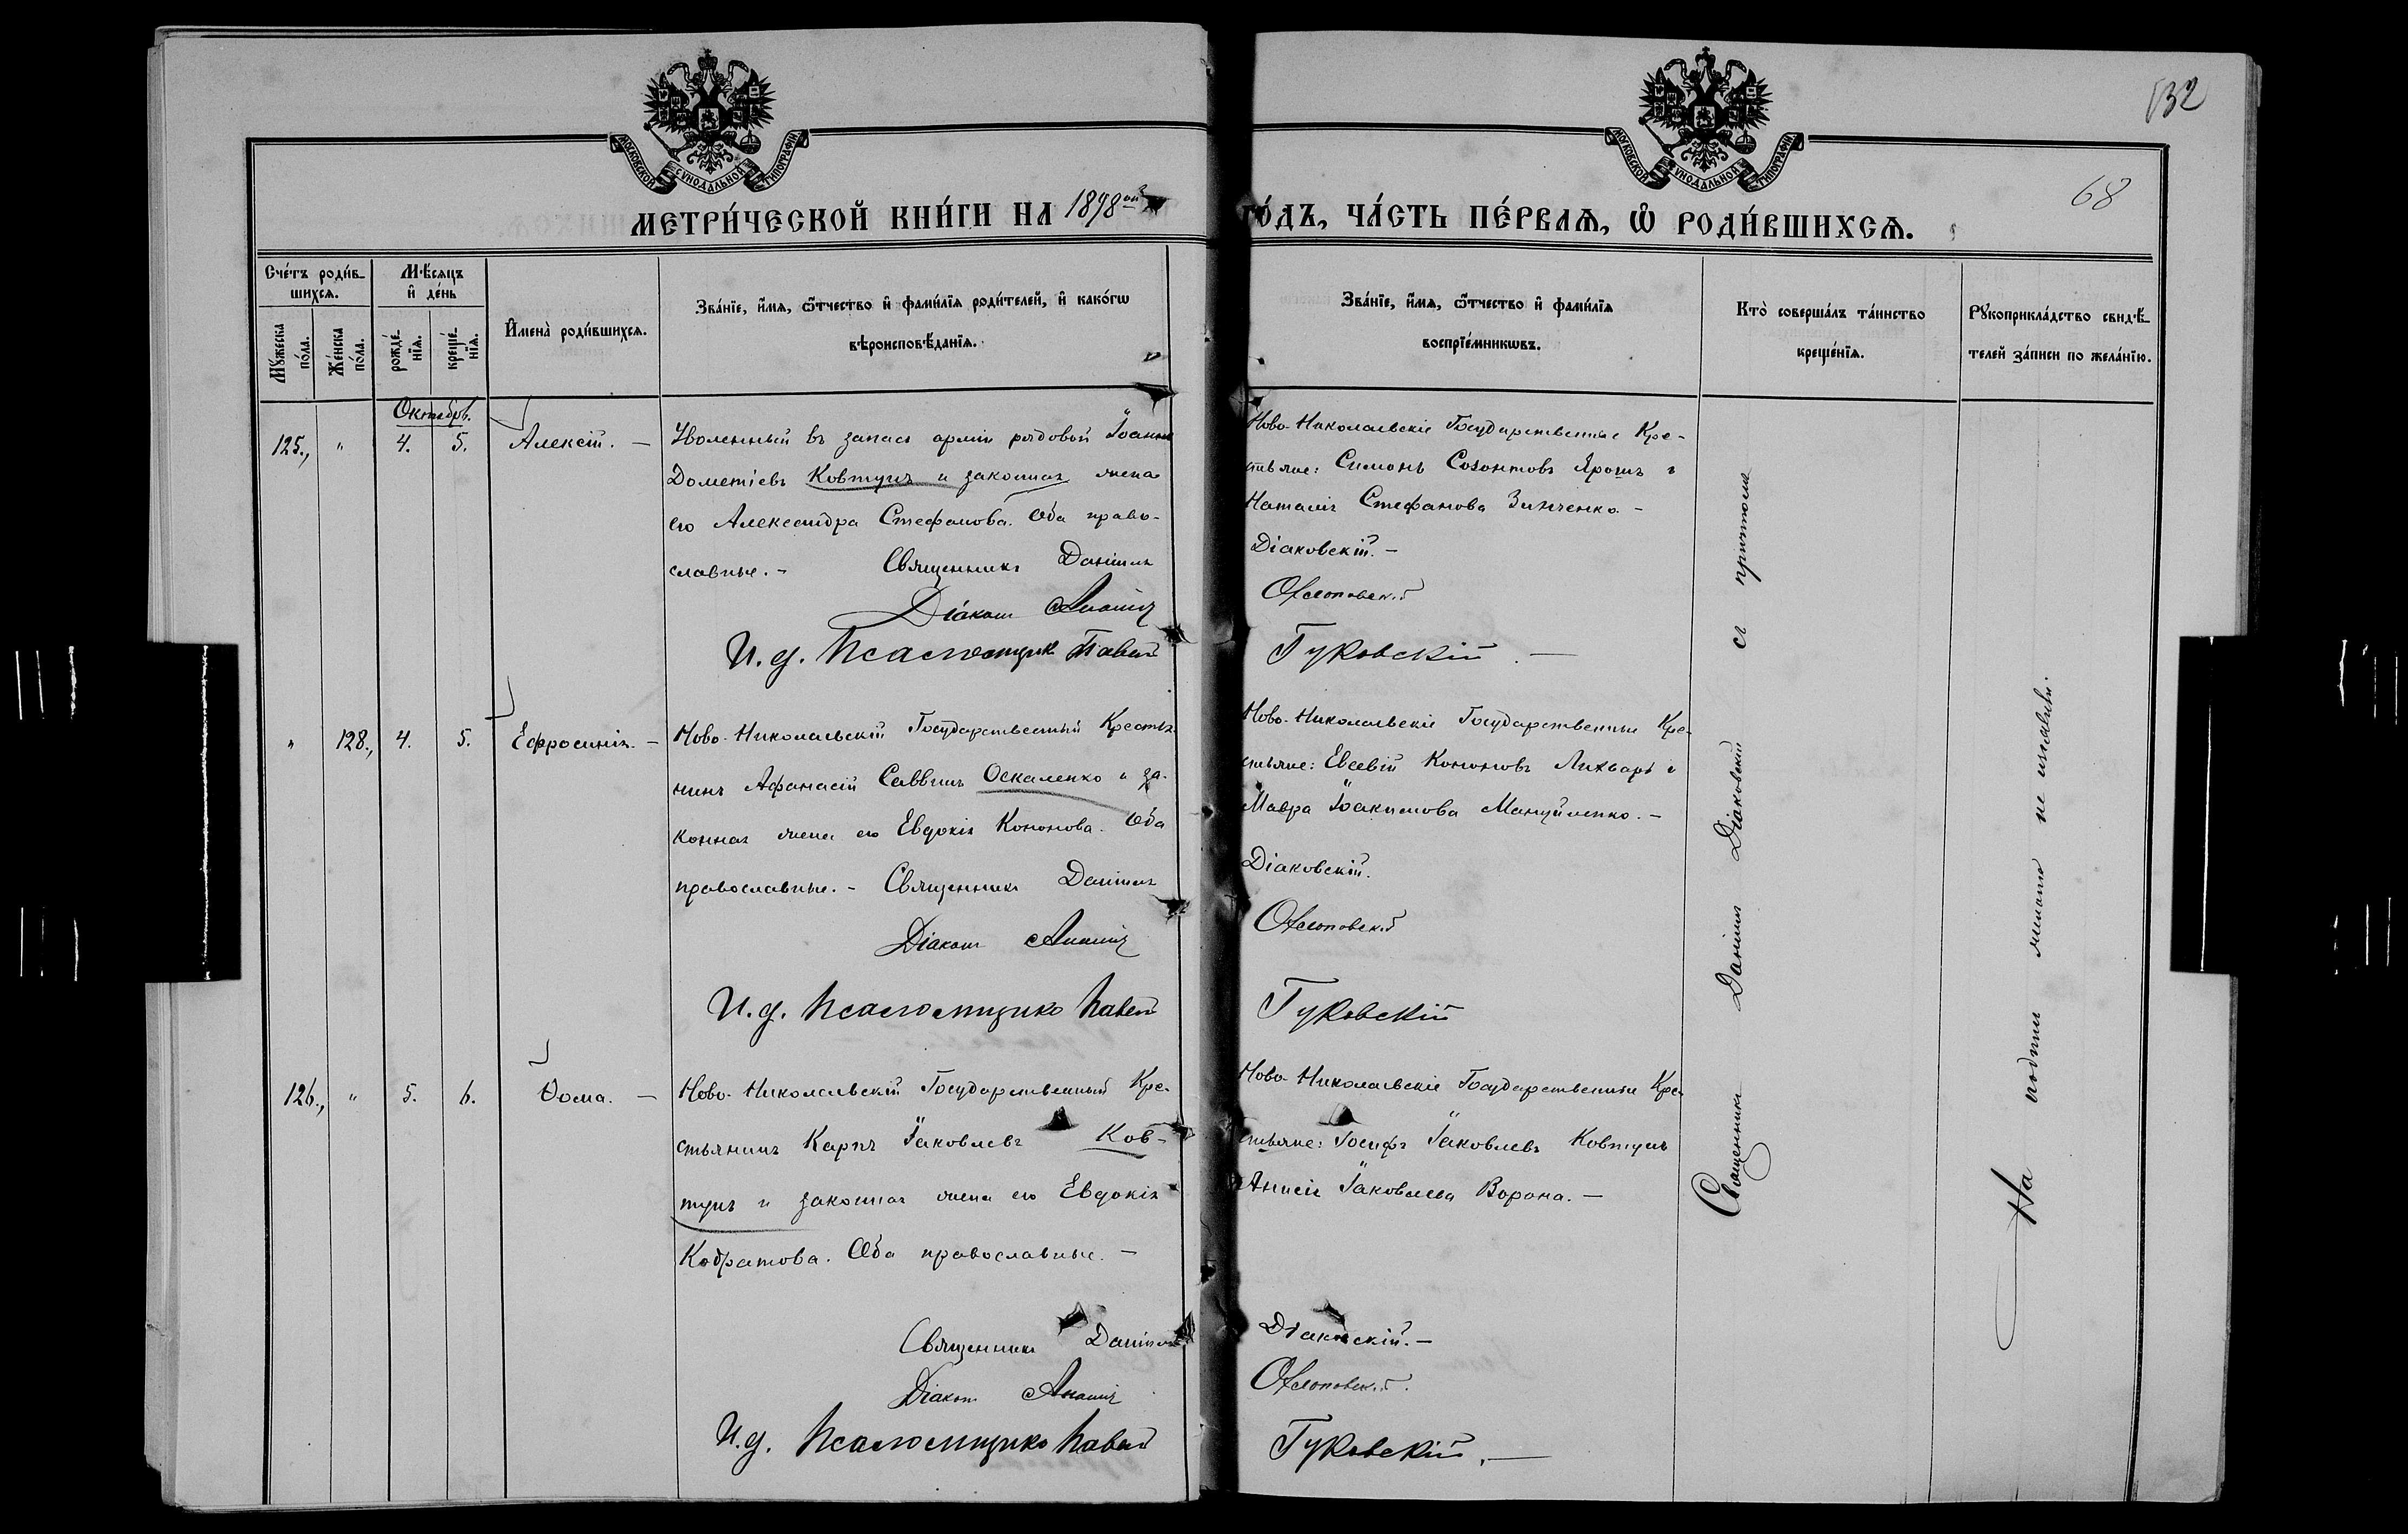 132
68
МОСКОВСКОЙ СѴНОДАЛЬНОЙ ТИПОГРАФІИ
МОСКОВСКОЙ СѴНОДАЛЬНОЙ ТИПОГРАФІИ
МЕТРИ́ЧЕСКОЙ КНИ́ГИ НА 1898 ый
ГО́ДЪ, ЧА́СТЬ ПЕ́РВАѦ, Ѡ҆ РОДИ́ВШИХСѦ.
Сче́тъ роди́в-
шихсѧ.
Мꙋ́жеска по́ла.
Же́нска по́ла.
Мѣ́сѧцъ
и҆ де́нь
рожде́-нїѧ.
креще́-нїѧ.
И҆мена̀ роди́вшихсѧ.
Зва́нїе, и҆́мѧ, ѻ҆́тчество и҆ фами́лїѧ роди́телей, и҆ како́гѡ
вѣроисповѣ́данїѧ.
Зва́нїе, и҆́мѧ, ѻ҆́тчество и҆ фами́лїѧ
воспрїе́мникѡвъ.
Кто̀ соверша́лъ та́инство
креще́нїѧ.
Рꙋкоприкла́дство свидѣ́-
телей за́писи по жела́нїю.
Октябрь.
125., " 4. 5. Алексій. —
Уволенный въ запасъ арміи рядовой Іоаннъ
Дометіевъ Ковтунъ и законная жена
его Александра Стефанова. Оба право-
славные. – Священникъ Даніилъ
Діаконъ Ананія
И. д. Псаломщика Павелъ
Ново-Николаевскіе Государственные Кре-
стьяне: Симонъ Созонтовъ Ярошъ и
Наталія Стефанова Зинченко –
Діаковскій. –
Гуковскій. —
" 128., 4. 5. Ефросинія. –
Ново-Николаевскій Государственный Крестья-
нинъ Афанасій Саввинъ Оскаленко и за-
конная жена его Евдокія Кононова. Оба
православные. – Священникъ Даніилъ
Діаконъ Ананія
И. д. Псаломщика Павелъ
Ново-Николаевскіе Государственные Кре-
стьяне: Евсевій Кононовъ Лихваръ и
Мавра Іоакимова Мануйленко. –
Діаковскій.
Гуковскій
126., " 5. 6. Ѳома. —
Ново-Николаевскій Государственный Кре-
стьянинъ Карпъ Іаковлевъ Ков-
тунъ и законная жена его Евдокія
Кодратова. Оба православные. –
Священникъ Даніилъ
Діаконъ Ананія
И. д. Псаломщика Павелъ
Ново-Николаевскіе Государственные Кре-
стьяне: Іосифъ Іаковлевъ Ковтунъ
Анисія Іаковлева Ворона. –
Діаковскій. –
Гуковскій. —
Священникъ Даніилъ Діаковскій съ причтомъ
На подпись желанія не изъявили.